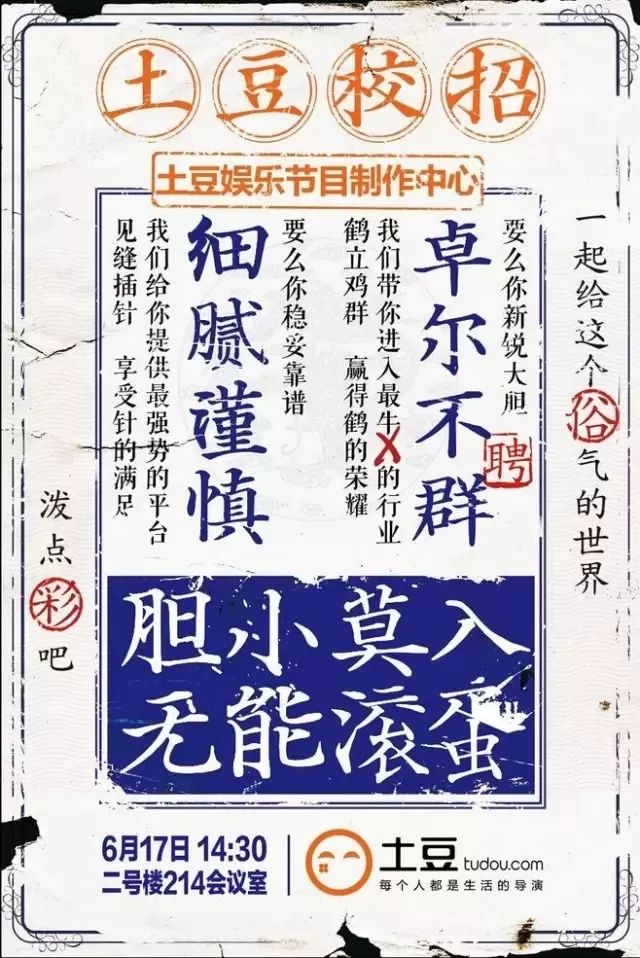 土豆校招
土豆娱乐节目制作中心
一起给这个俗气的世界
要么你新锐大胆
卓尔不群
聘
我们带你进入最牛X的行业
鹤立鸡群 赢得鹤的荣耀
要么你稳妥靠谱
细腻谨慎
我们给你提供最强势的平台
见缝插针 享受针的满足
泼点彩吧
胆小莫入
无能滚蛋
6月17日 14:30
二号楼214会议室
土豆tudou.com
每个人都是生活的导演